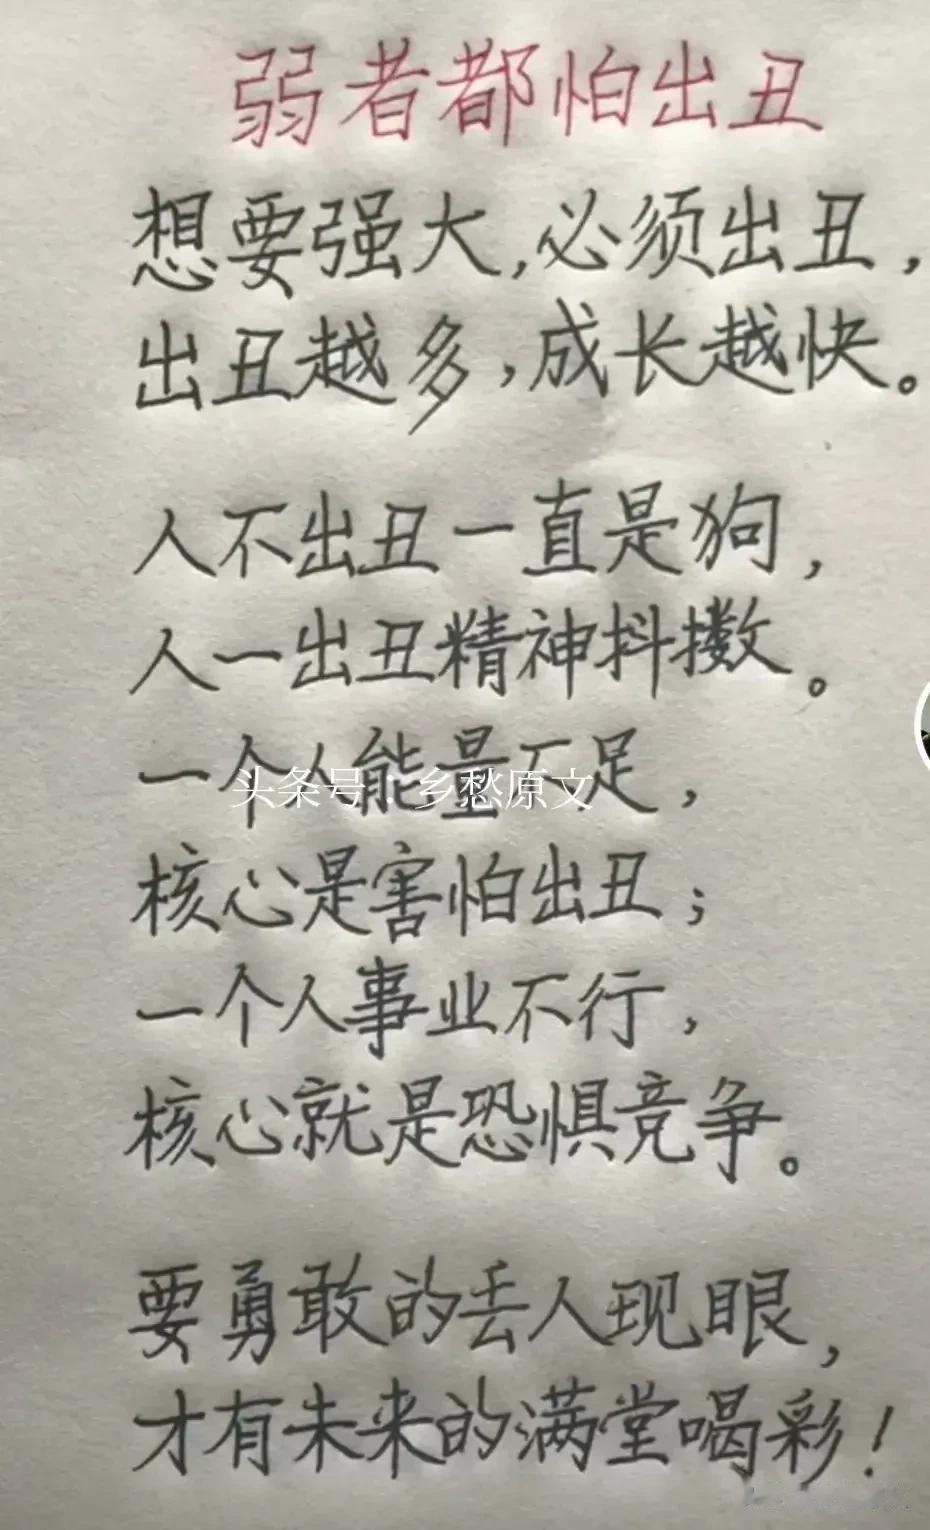 弱者都怕出丑
想要强大,必须出丑,
出丑越多,成长越快。
人不出丑一直是狗,
人一出丑精神抖擞。
一个人能量不足,
头条号:乡愁原文
核心是害怕出丑;
一个人事业不行,
核心就是恐惧竞争。
要勇敢的丢人现眼,
才有未来的满堂喝彩!